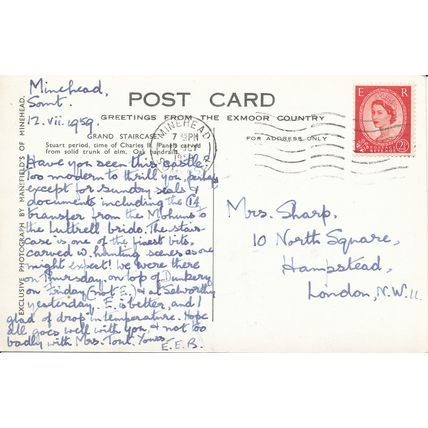 POST CARD
GREETINGS FROM THE EXMOOR COUNTRY
GRAND STAIRCASE
Stuart period, time of Charles II. Panels carved
from solid trunk of elm. Oak
FOR ADDRESS ONLY
EXCLUSIVE PHOTOGRAPH BY MANIFIELD'S OF MINEHEAD.
MINEHEAD
7 PM
E R
2½
Minehead,
Somt.
12.vii.1959.
Have you seen this castle?
Too modern to thrill you, perhaps
except for sundry seals &
documents including the 14
transfer from the Mohuns to
the Luttrell bride. The stair-
case is one of the finest bits,
carved w. hunting scenes as one
might expect! We were there
on Thursday, on top of Dunkery
on Friday (not E.) & at Selworthy
yesterday. E. is better, and I
glad of drop in temperature. Hope
all goes well with you, & not too
badly with Mrs. Yours,
E.E.B.
Mrs. Sharp,
10 North Square,
Hampstead,
London, N.W.11.